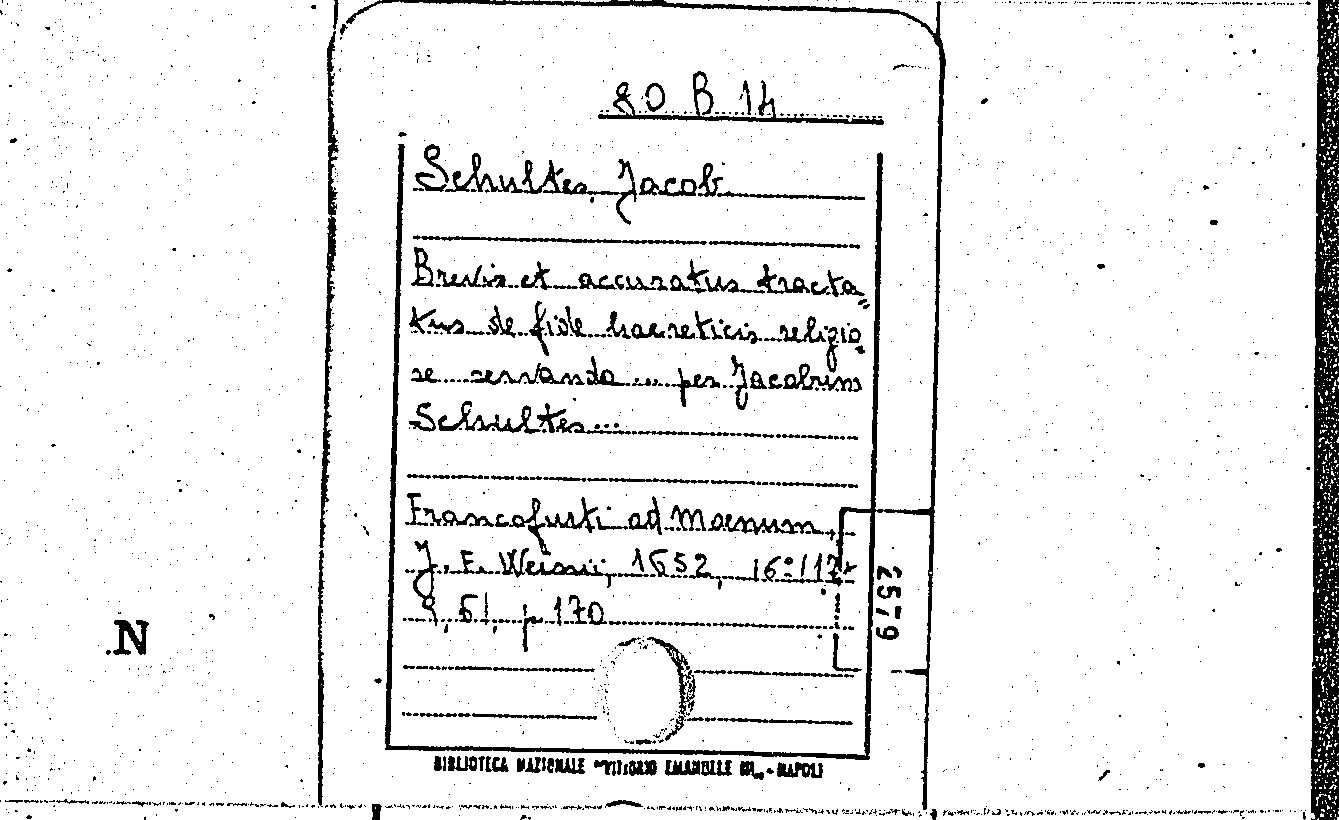 80 B 14
Schultes, Jacob
Brevis et accuratus tracta„
tus de fide haereticis religio„
se servando ... per Jacobum
Schultes...
Francofurti ad Moenum,
J. F. Weissii, 1652, 16º
p. 170
2579
N
BIBLIOTECA NAZIONALE "VITTORIO EMANUELE III„ - NAPOLI